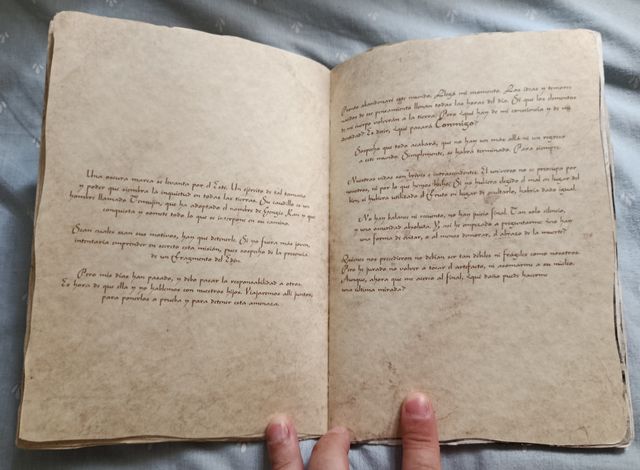 Una oscura marea se levanta por el Este. Un ejército de tal tamaño
y poder que siembra la inquietud en todas las tierras. Su caudillo es un
hombre llamado Temujin, que ha adoptado el nombre de Gengis Kan y que
conquista y somete todo lo que se interpone en su camino.
Sean cuales sean sus motivos, hay que detenerle. Si yo fuera más joven,
intentaría emprender en secreto esta misión, pues sospecho de la presencia
de un Fragmento del Edén.
Pero mis días han pasado, y debo pasar la responsabilidad a otros.
Es hora de que ella y yo hablemos con nuestros hijos. Viajaremos allí juntos,
para ponerlos a prueba y para detener esta amenaza.
Pronto abandonaré este mundo. Llegó mi momento. Las ideas y temores
nacidos de ese pensamiento llenan todas las horas del día. Sé que los elementos
de mi cuerpo volverán a la tierra. Pero ¿qué hay de mi conciencia y de mi
identidad? Es decir, ¿qué pasará Conmigo?
Sospecho que todo acabará, que no hay un más allá ni un regreso
a este mundo. Simplemente, se habrá terminado. Para siempre.
Nuestras vidas son breves e intrascendentes. El universo no se preocupa por
nosotros, ni por lo que hemos hecho. Si yo hubiera elegido el mal en lugar del
bien, si hubiera utilizado el Fruto en lugar de ocultarlo, habría dado igual.
No hay balance ni recuento, no hay juicio final. Tan solo silencio,
y una oscuridad absoluta. Y así he empezado a preguntarme: ¿no hay
una forma de evitar, o al menos demorar, el abrazo de la muerte?
Quienes nos precedieron no debían ser tan débiles ni frágiles como nosotros.
Pero he jurado no volver a tocar el artefacto, ni asomarme a su núcleo.
Aunque, ahora que me acerco al final, ¿qué daño puede hacerme
una última mirada?